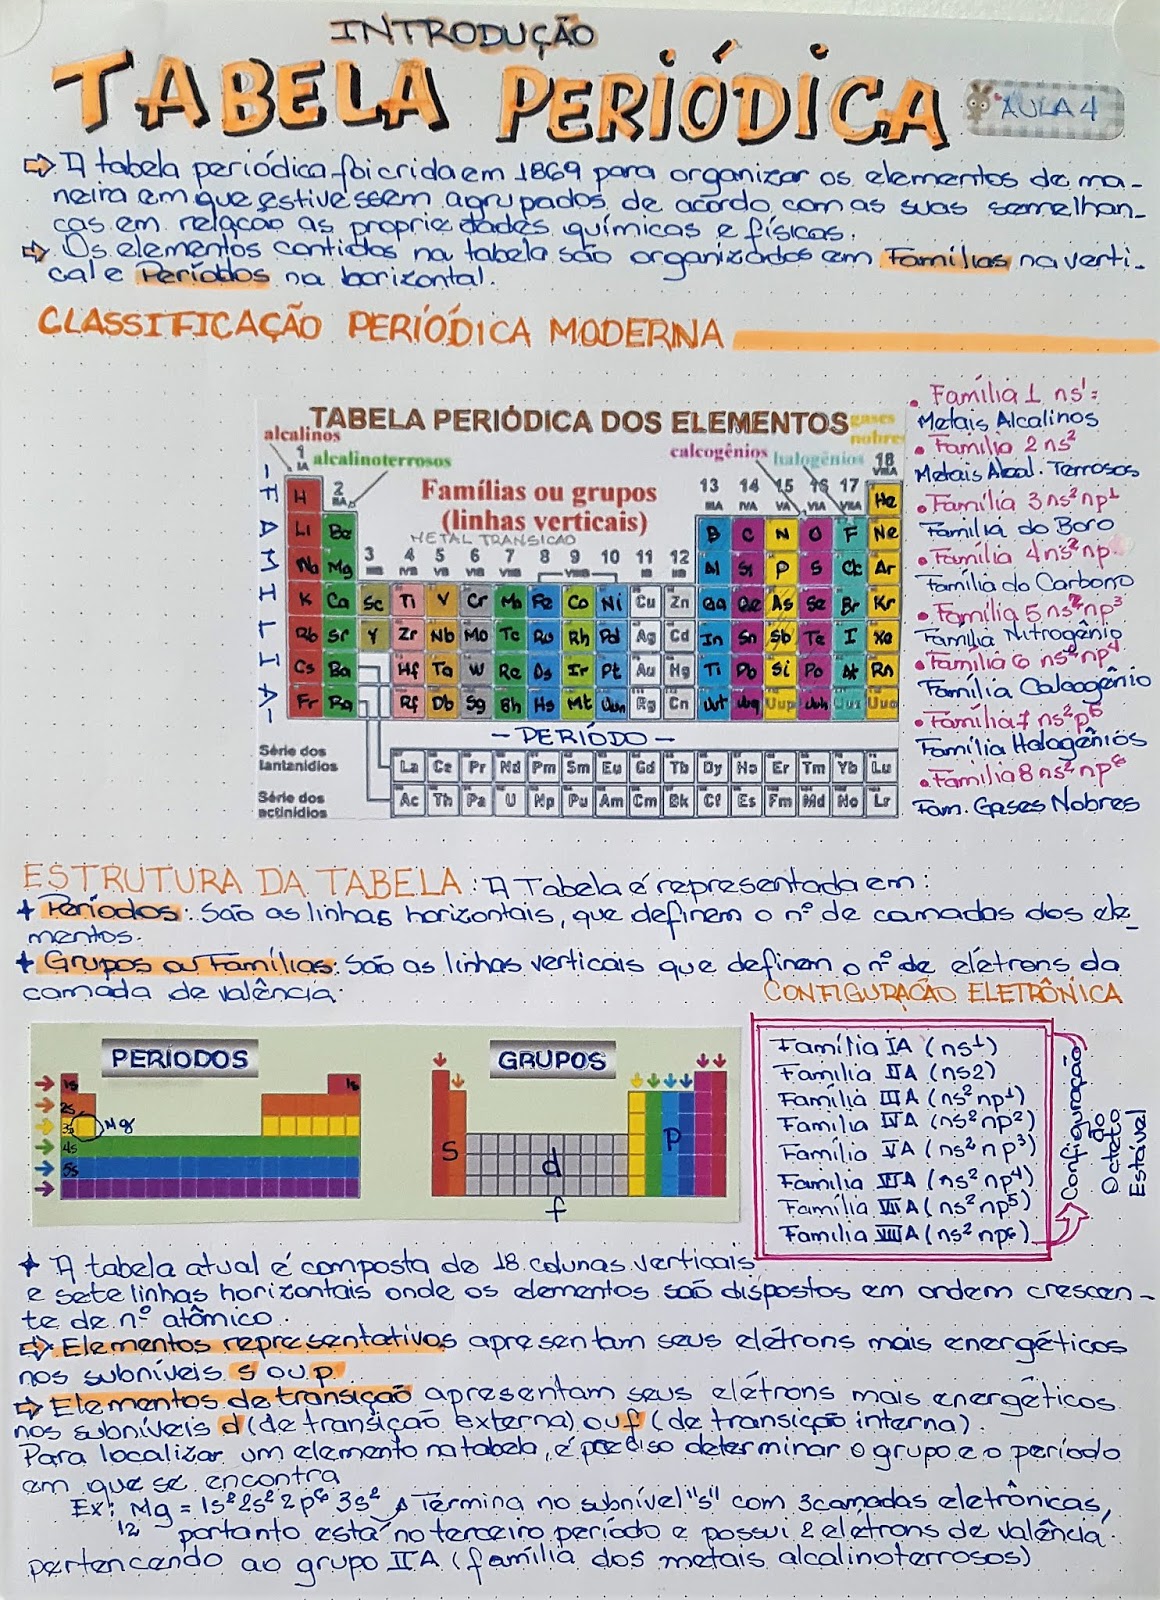 INTRODUÇÃO
TABELA PERIÓDICA
AULA 4
⇨ A tabela periódica foi crida em 1869 para organizar os elementos de ma-
neira em que estivessem agrupados de acordo com as suas semelhan-
ças em relação as propriedades químicas e físicas.
⇨ Os elementos contidos na tabela são organizados em Famílias na verti-
cal e Períodos na horizontal.
CLASSIFICAÇÃO PERIÓDICA MODERNA
TABELA PERIÓDICA DOS ELEMENTOS
gases nobres
alcalinos
alcalinoterrosos
calcogênios
halogênios
Famílias ou grupos
(linhas verticais)
METAL TRANSICAO
-FAMILIA-
1 2 3 4 5 6 7 8 9 10 11 12 13 14 15 16 17 18
IA IIA IIIB IVB VB VIB VIIB VIIIB IB IIB IIIA IVA VA VIA VIIA VIIIA
H He
Li Be B C N O F Ne
Na Mg Al Si P S Cl Ar
K Ca Sc Ti V Cr Mn Fe Co Ni Cu Zn Ga Ge As Se Br Kr
Rb Sr Y Zr Nb Mo Tc Ru Rh Pd Ag Cd In Sn Sb Te I Xe
Cs Ba Hf Ta W Re Os Ir Pt Au Hg Ti Pb Si Po At Rn
Fr Ra Rf Db Sg Bh Hs Mt Uun Rg Cn Uut Uuq Uup Uuh Uus Uuo
- PERÍODO -
Série dos
lantanídios
La Ce Pr Nd Pm Sm Eu Gd Tb Dy Ho Er Tm Yb Lu
Série dos
actinídios
Ac Th Pa U Np Pu Am Cm Bk Cf Es Fm Md No Lr
• Família 1 ns¹:
Metais Alcalinos
• Família 2 ns²
Metais Alcal. Terrosos
• Família 3 ns² np¹
Família do Boro
• Família 4 ns² np
Família do Carbono
• Família 5 ns² np³
Família Nitrogênio
• Família 6 ns² np⁴
Família Calcogênio
• Família 7 ns² p⁵
Família Halogênios
• Família 8 ns² np⁶
Fam. Gases Nobres
ESTRUTURA DA TABELA: A Tabela é representada em:
+ Períodos: São as linhas horizontais, que definem o nº de camadas dos ele-
mentos.
+ Grupos ou Famílias: São as linhas verticais que definem o nº de elétrons da
camada de valência.
CONFIGURAÇÃO ELETRÔNICA
PERÍODOS
1s 1s
2s
3s Mg
4s
5s
GRUPOS
S d p
f
Família IA (ns¹)
Família IIA (ns2)
Família IIIA (ns² np¹)
Família IVA (ns² np²)
Família VA (ns² np³)
Família VIA (ns² np⁴)
Família VIIA (ns² np⁵)
Família VIIIA (ns² np⁶)
Configuração
do
Octeto
Estável
+ A tabela atual é composta de 18 colunas verticais
e sete linhas horizontais onde os elementos são dispostos em ordem crescen-
te de nº atômico.
⇨ Elementos representativos apresentam seus elétrons mais energéticos
nos subníveis s ou p
⇨ Elementos de transição apresentam seus elétrons mais energéticos
nos subníveis d (de transição externa) ou f (de transição interna).
Para localizar um elemento na tabela, é preciso determinar o grupo e o período
em que se encontra
Ex: Mg = 1s² 2s² 2p⁶ 3s² → Termina no subnível "s" com 3 camadas eletrônicas,
12 portanto está no terceiro período e possui 2 elétrons de valência.
pertencendo ao grupo IIA (família dos metais alcalinoterrosos)